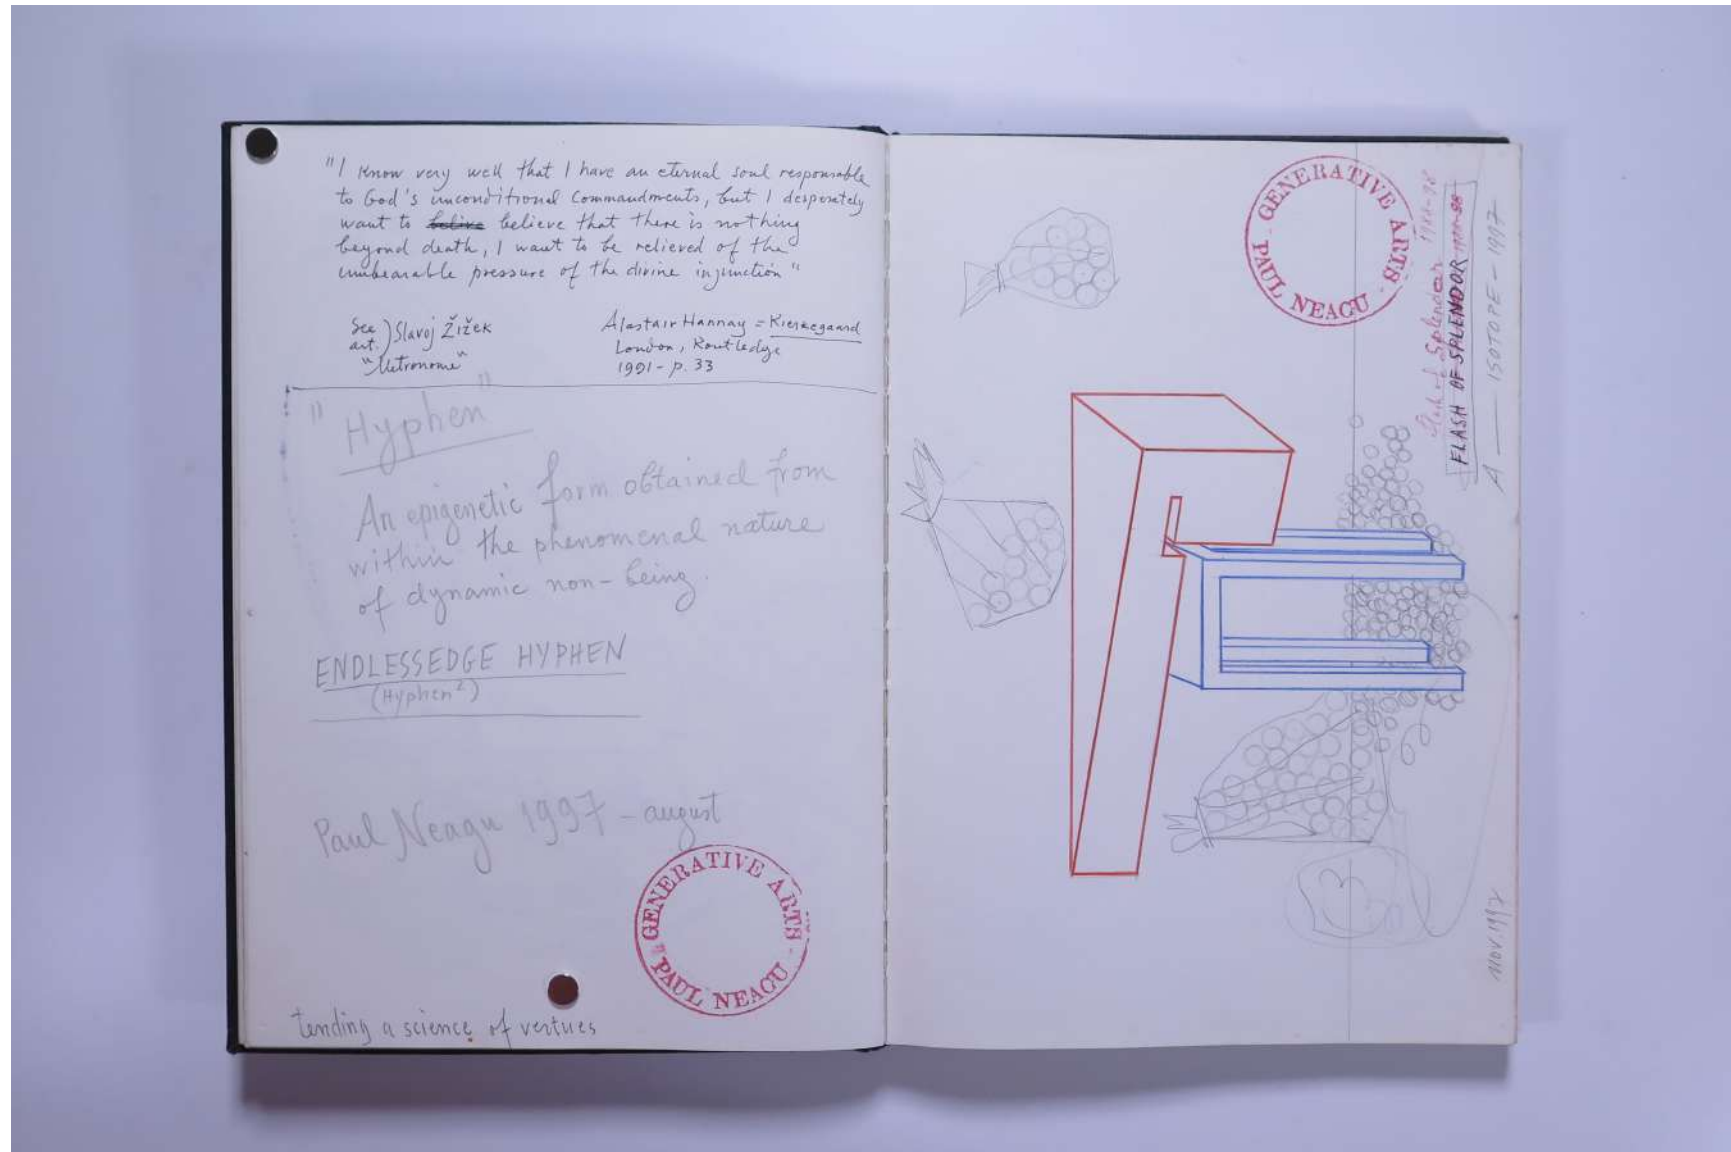 "I know very well that I have an eternal soul responsable
to God's unconditional Commandments, but I desperately
want to belive believe that there is nothing
beyond death, I want to be relieved of the
unbearable pressure of the divine injunction"
See art.) Slavoj Žižek
"Metronome"
Alastair Hannay = Kierkegaard
London, Routledge
1991 - p. 33
"Hyphen"
An epigenetic form obtained from
within the phenomenal nature
of dynamic non-being.
ENDLESSEDGE HYPHEN
(Hyphen²)
Paul Neagu 1997 - august
GENERATIVE ARTS
PAUL NEAGU
tending a science of vertues
GENERATIVE ARTS
PAUL NEAGU
Flash of Splendour
FLASH OF SPLENDOR
A — ISOTOPE - 1997
NOV 1997